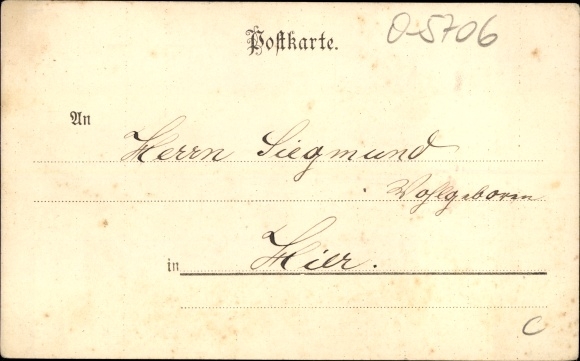 Postkarte.
O-5706
An
Herrn Siegmund
Wohlgeboren
in Hier.
C